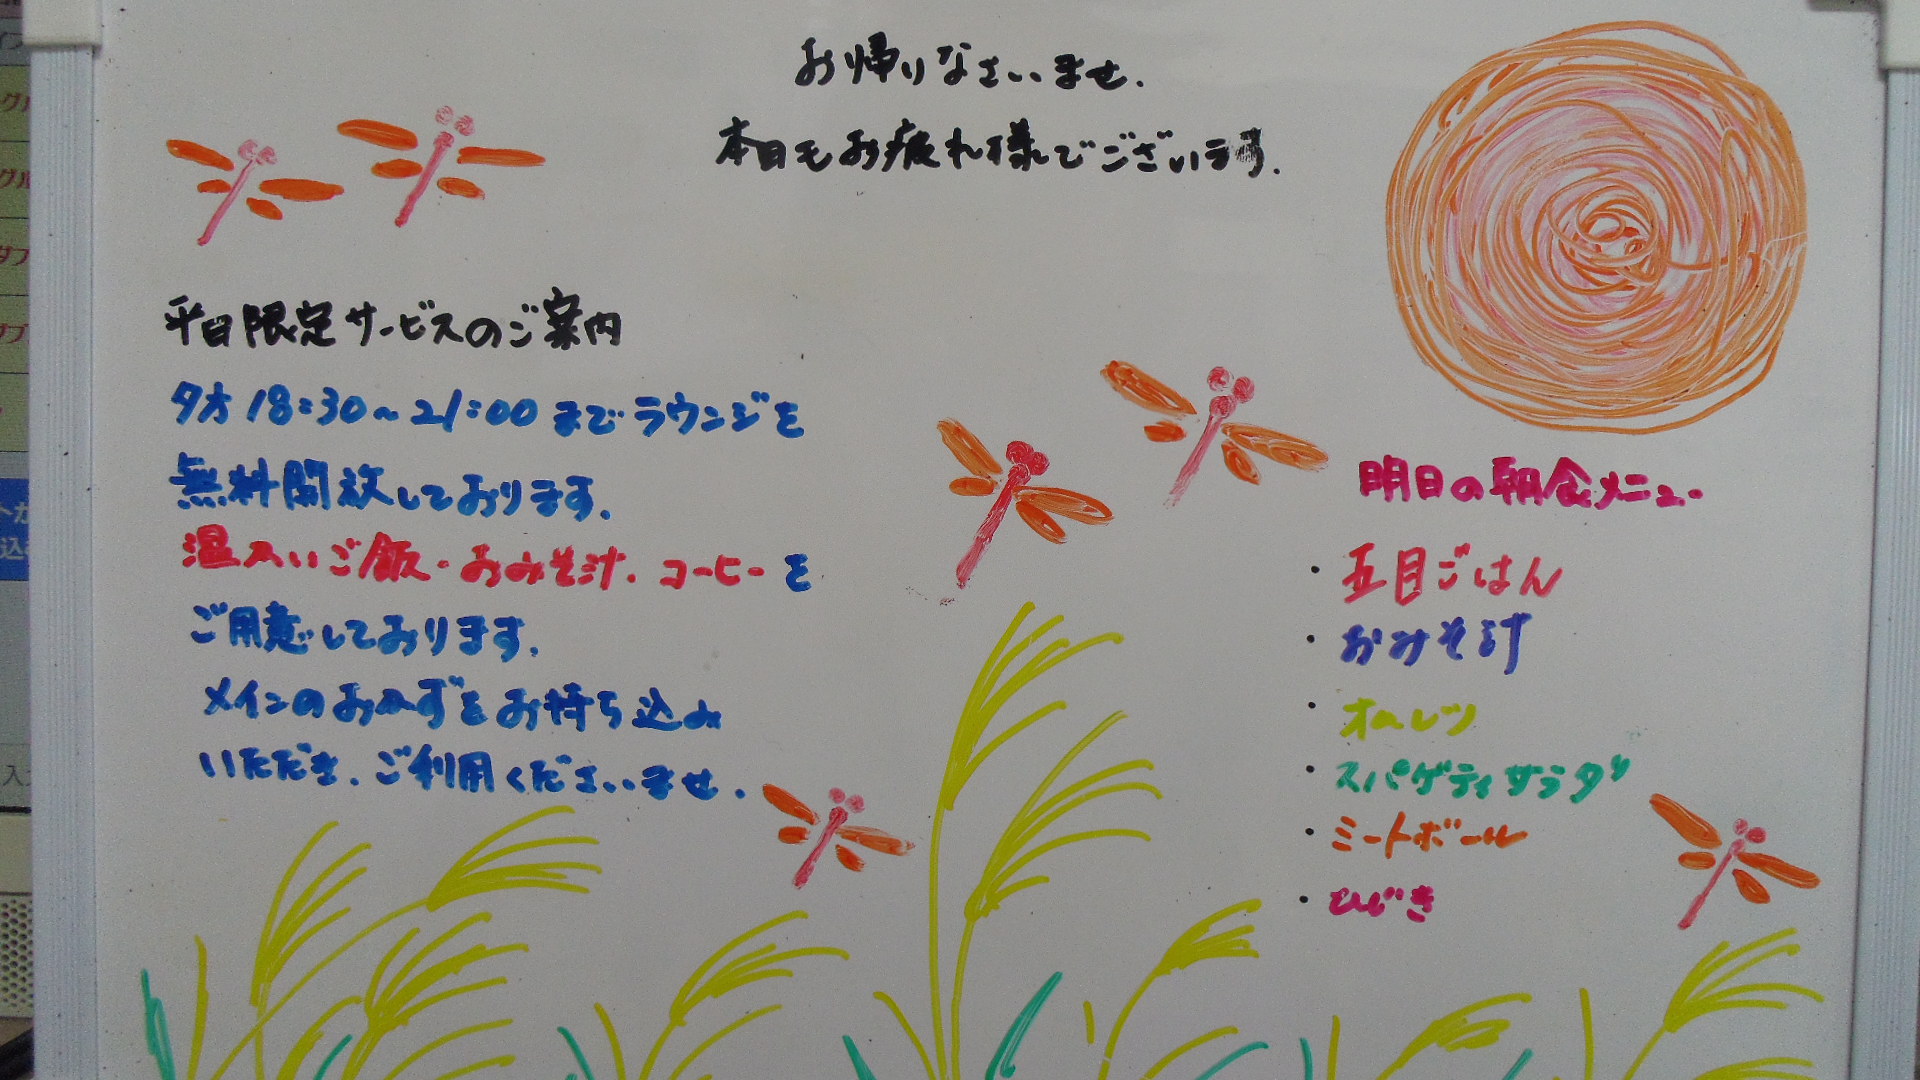 お帰りなさいませ.
本日もお疲れ様でございます.
平日限定サービスのご案内
夕方18:30~21:00までラウンジを
無料開放しております.
温かいご飯・おみそ汁.コーヒーを
ご用意しております.
メインのおかずをお持ち込み
いただき.ご利用くださいませ.
明日の朝食メニュー
・五目ごはん
・おみそ汁
・オムレツ
・スパゲティサラダ
・ミートボール
・ひじき